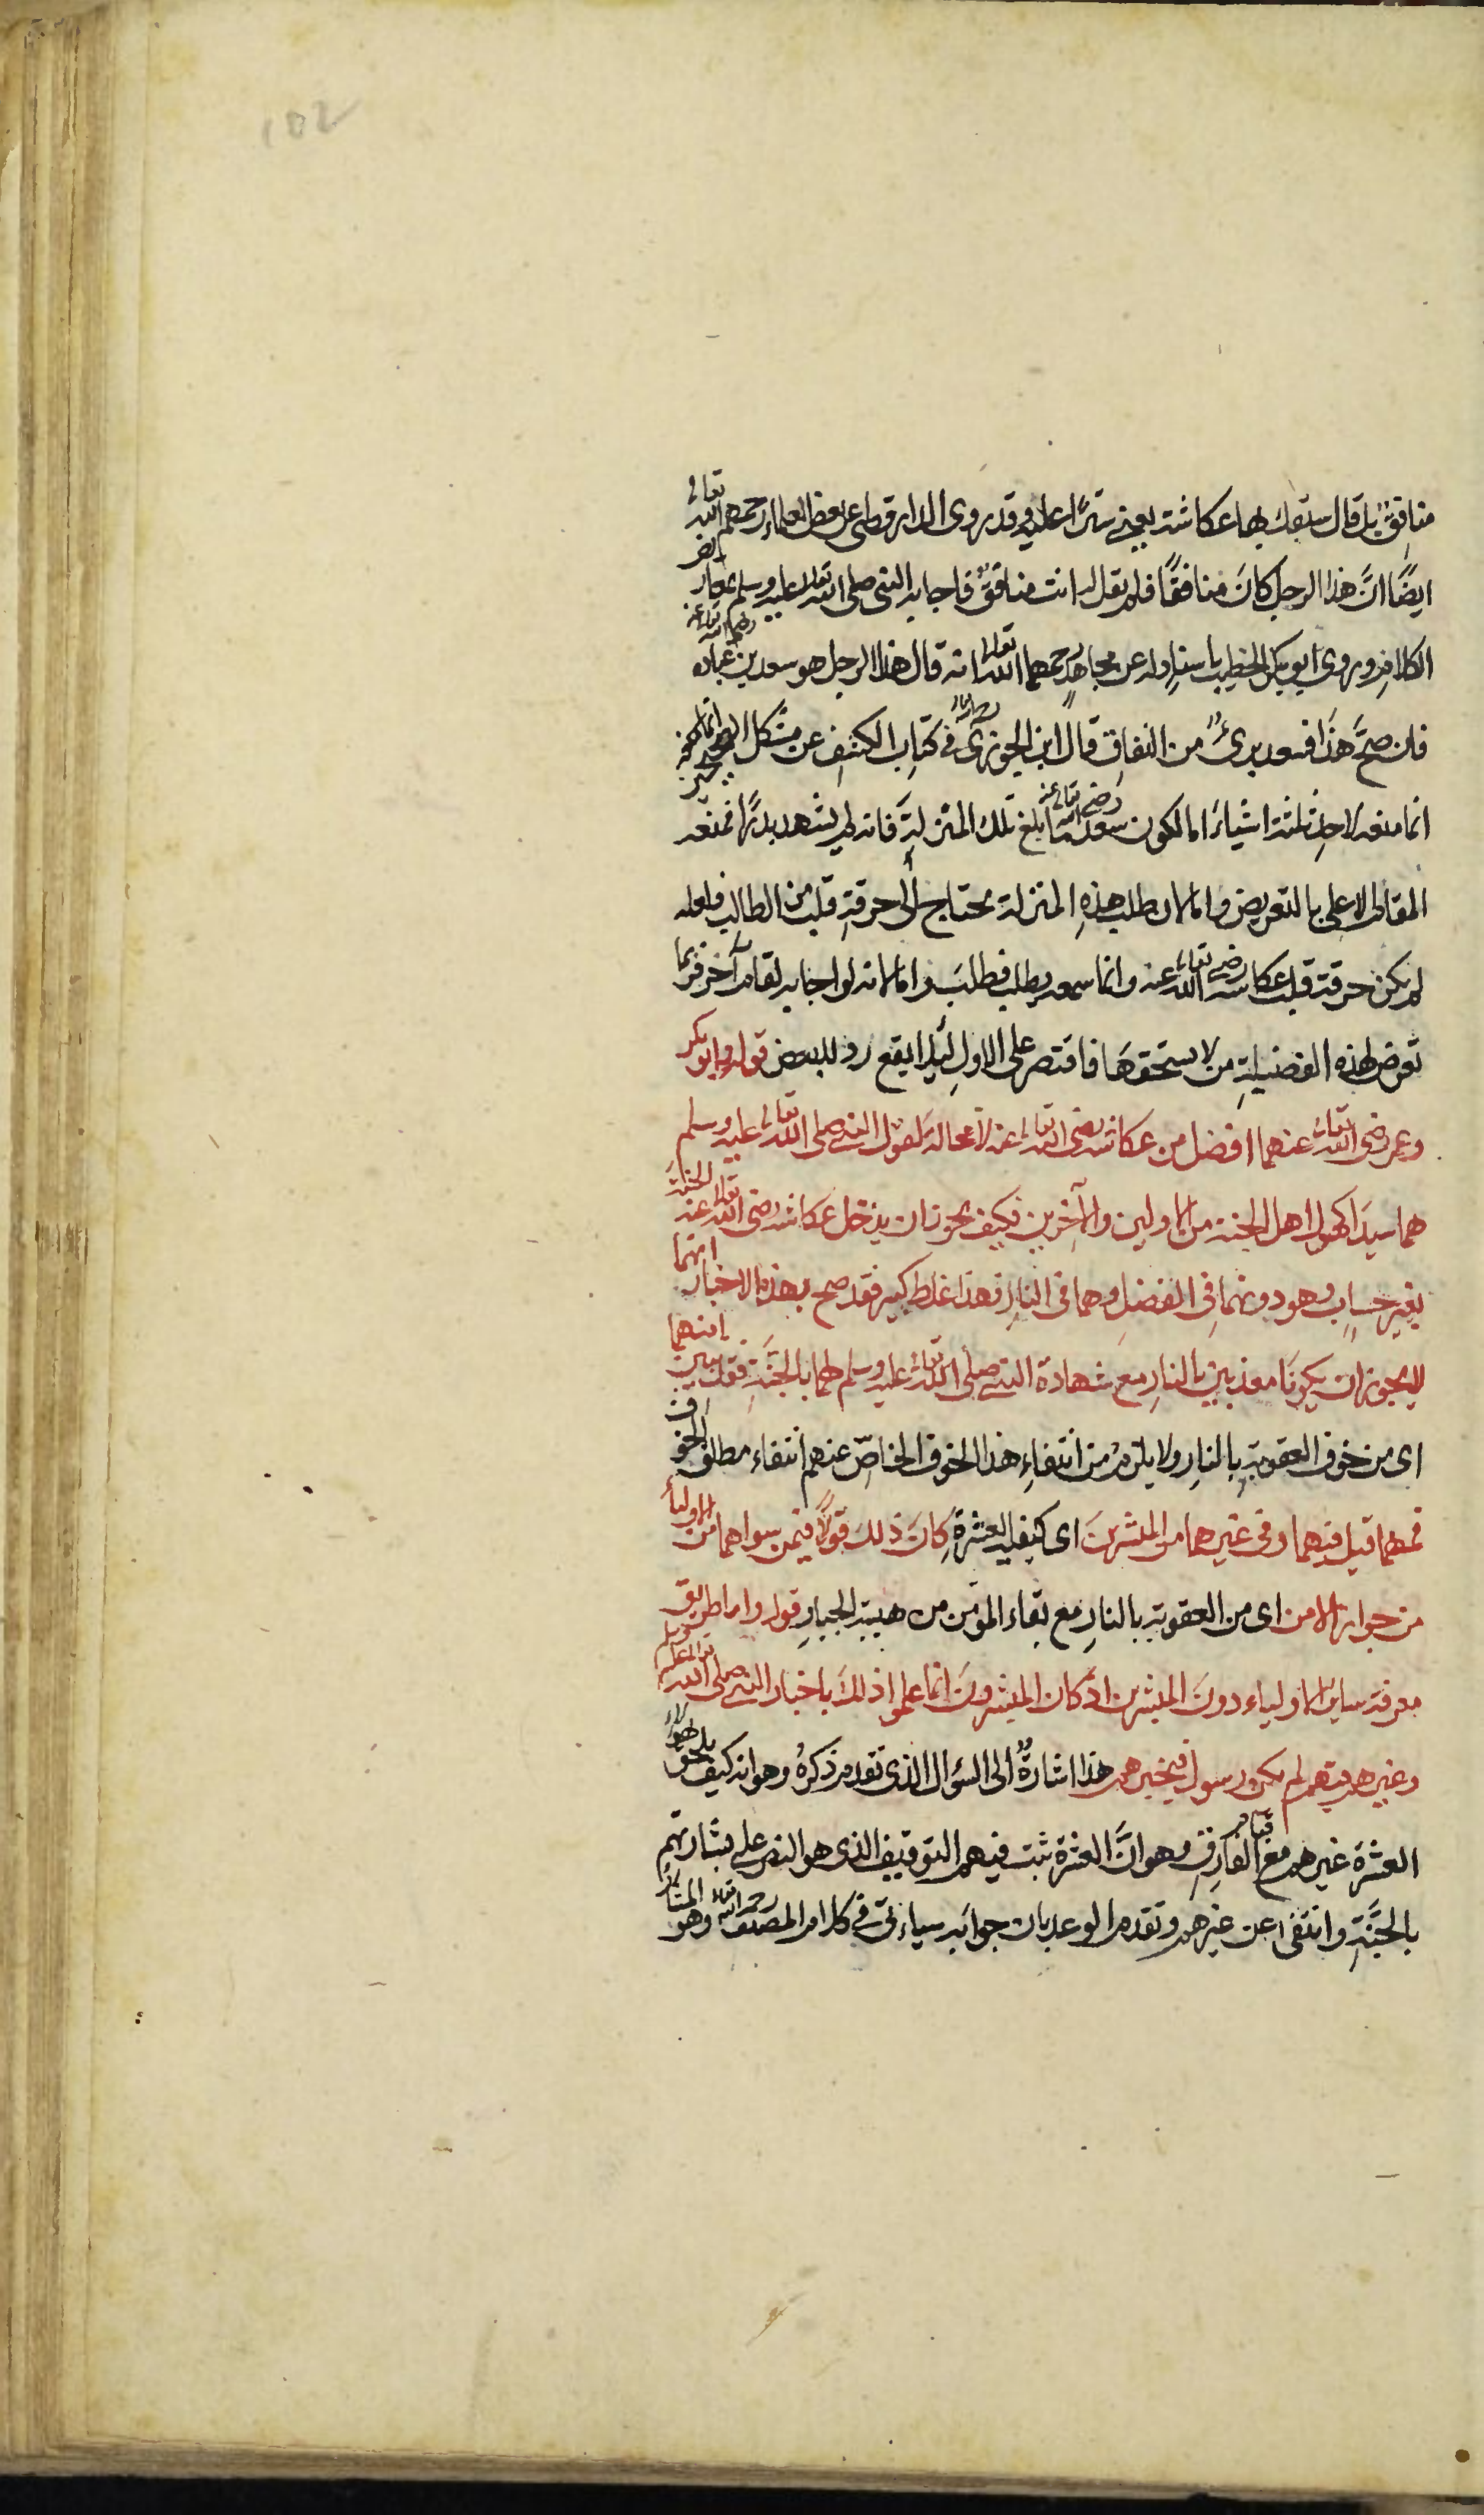 102
منافق بل قال سبقك بها عكاشة يعني سترا عليه وقد روى الدارقطني عن بعض العلماء رحمهم الله تعالى
ايضًا انَّ هذا الرجل كانَ منافقًا فلم يقل له انت منافقٌ فاجابه النبي صلى الله تعالى عليه وسلم بمعاريض
الكلام وروى ابو بكر الخطيب باسنادٍ له عن مجاهدٍ رحمهما الله تعالى انه قال هذا الرجل هو سعد بن عباده رضي الله تعالى عنه
فان صحَّ هذَا فسعد برىءٌ من النفاق قال ابن الجوزى رحمه الله في كتاب الكشف عن مشكل الصحيحين انه
انما منعه لاجل ثلثة اشياءَ اما لكون سعد رضي الله تعالى عنه ما بلغ تلك المنزلة فانه لم يشهد بدرًا فمنعه
المقام الاعلى بالتعريض واما لان طلب هذهِ المنزلة يحتاج الى حرقةِ قلب من الطالب فلعله
لم يكن حرقة قلب عكاشه رضي الله تعالى عنه وانما سمعه يطلب فطلبَ واما لانه لو اجابه لقام آخر فربما
تعرض لهذه الفضيلةِ من لا يستحقهَا فاقتصر على الاول لئلا يقع رد للبعض قوله وابو بكر
وعمر رضي الله تعالى عنهما افضل من عكاشه رضى الله تعالى عنه لا محالة لقول النبي صلى الله تعالى عليه وسلم
هما سيدَا كهول اهل الجنة من الاولين والآخرين فكيف يجوز ان يدخل عكاشه رضى الله تعالى عنه الجنة
بغير حسابٍ وهو دونهما في الفضلِ وهما فى النارِ فهذا غلط كبير فقد صح بهذه الاخبار انهما
لا يجوز ان يكونَا معذبين بالنارِ مع شهادة النبي صلى الله تعالى عليه وسلم لهما بالجنَّةِ فقد تبين امنهما
اى من خوف العقوبة بالنارِ ولا يلزم من انتفاءِ هذا الخوف الخاصّ عنهم انتفاء مطلق الخوف
فمهما قيل فيهما وفى غيرهما من المبشرينَ اى كبقية العشرةِ كانَ ذلكَ قولًا فيمن سواهما من الاولياء
من جواز الامن اى من العقوبة بالنارِ مع بقاء المؤمن من هيبة الجبارِ قوله واما طريق
معرفة ساير الاولياء دونَ المبشرين اذ كان المبشرونَ انما علموا ذلكَ باخبار النبي صلى الله تعالى عليه وسلم
وغيرهم فيهم لم يكن رسول فيخبرهم هذا اشارةٌ الى السؤال الذى تقدم ذكرهُ وهو انه كيف يلحق بهؤلاء
العشرة غيرهم مع قيام الفارقِ وهو انَّ العشرة ثبت فيهم التوقيف الذى هو النص على بشارتهم
بالجنَّةِ وانتفى عن غيرهم وتقدم الوعد بان جوابَه سياتى في كلام المصنف رحمه الله تعالى وهو